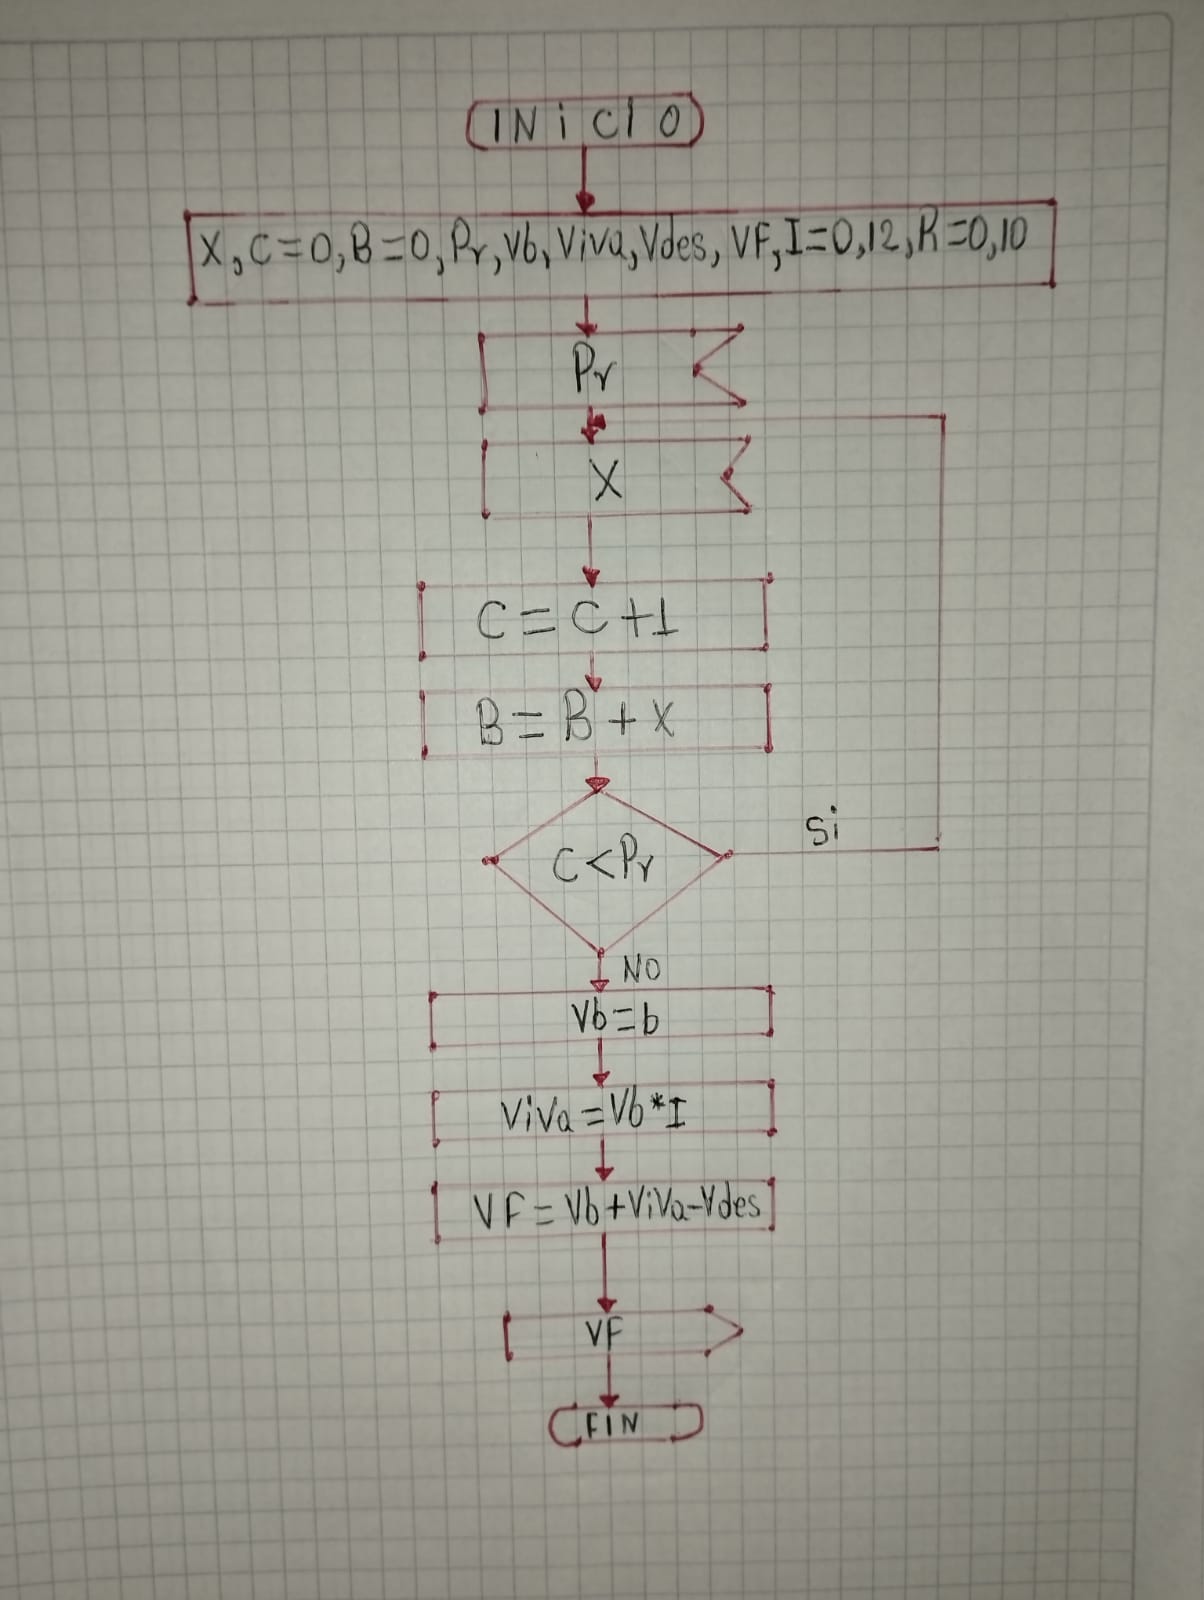 INiCIO
X, C=0, B=0, Pr, Vb, Viva, Vdes, VF, I=0,12, R=0,10
Pr
X
C=C+1
B=B+X
C<Pr
Si
NO
Vb=b
ViVa=Vb*I
VF=Vb+ViVa-Vdes
VF
FIN